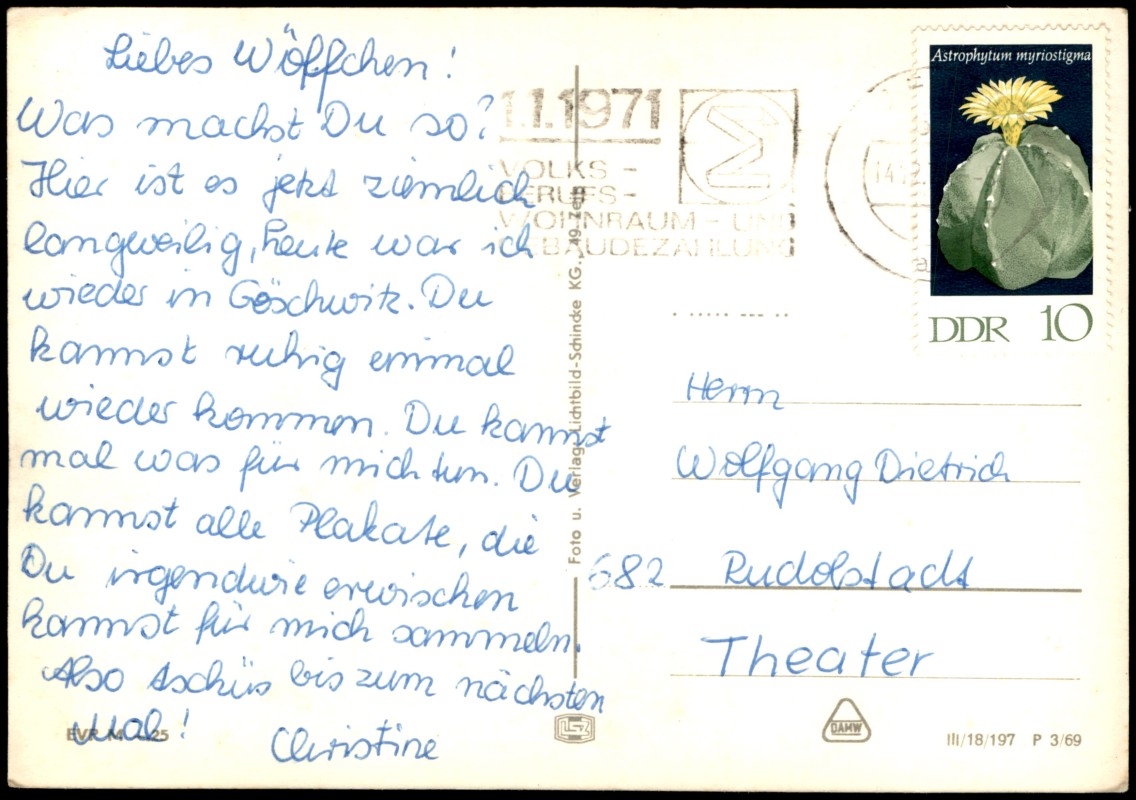 Liebes Wölffchen!
Was machst Du so?
Hier ist es jetzt ziemlich
langweilig, heute war ich
wieder in Göschwitz. Du
kannst ruhig einmal
wieder kommen. Du kannst
mal was für mich tun. Du
kannst alle Plakate, die
Du irgendwie erwischen
kannst für mich sammeln.
Also tschüs bis zum nächsten
Mal!
Christine
1.1.1971
VOLKS-
BERUFS-
WOHNRAUM- UND
GEBÄUDEZÄHLUNG
Astrophytum myriostigma
DDR 10
Foto u. Verlag: Lichtbild-Schincke KG.
Herrn
Wolfgang Dietrich
682 Rudolstadt
Theater
EVP M
25
DAMW
III/18/197 P 3/69